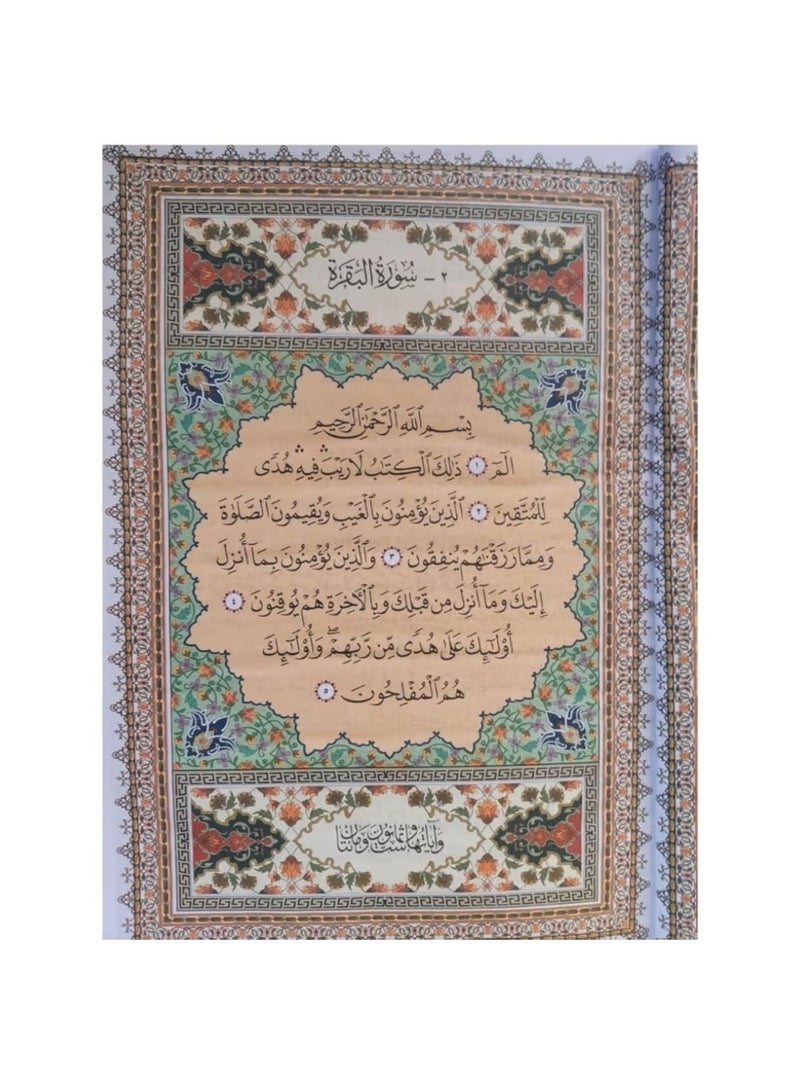 ٢ - سُورَةُ البَقَرَة
بِسْمِ ٱللَّهِ ٱلرَّحْمَٰنِ ٱلرَّحِيمِ
الٓمٓ ١ ذَٰلِكَ ٱلْكِتَٰبُ لَا رَيْبَ ۛ فِيهِ ۛ هُدًى
لِّلْمُتَّقِينَ ٢ ٱلَّذِينَ يُؤْمِنُونَ بِٱلْغَيْبِ وَيُقِيمُونَ ٱلصَّلَوٰةَ
وَمِمَّا رَزَقْنَٰهُمْ يُنفِقُونَ ٣ وَٱلَّذِينَ يُؤْمِنُونَ بِمَآ أُنزِلَ
إِلَيْكَ وَمَآ أُنزِلَ مِن قَبْلِكَ وَبِٱلْأَخِرَةِ هُمْ يُوقِنُونَ ٤
أُو۟لَٰٓئِكَ عَلَىٰ هُدًى مِّن رَّبِّهِمْ ۖ وَأُو۟لَٰٓئِكَ
هُمُ ٱلْمُفْلِحُونَ ٥
وَآيَاتُهَا سِتٌّ وَثَمَانُونَ وَمِائَتَانِ